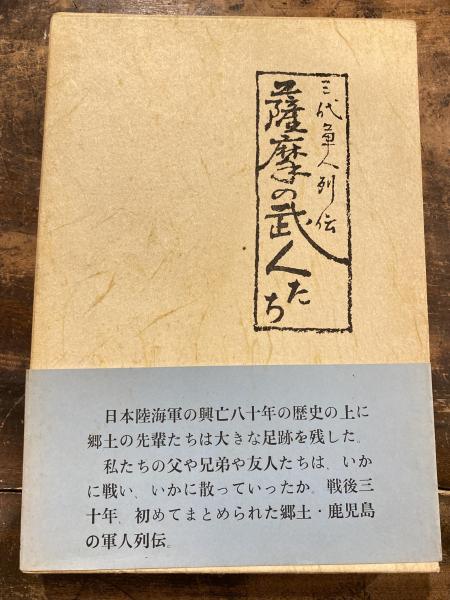 三代軍人列伝
薩摩の武人たち
日本陸海軍の興亡八十年の歴史の上に
郷土の先輩たちは大きな足跡を残した。
私たちの父や兄弟や友人たちは、いか
に戦い、いかに散っていったか。戦後三
十年、初めてまとめられた郷土・鹿児島
の軍人列伝。